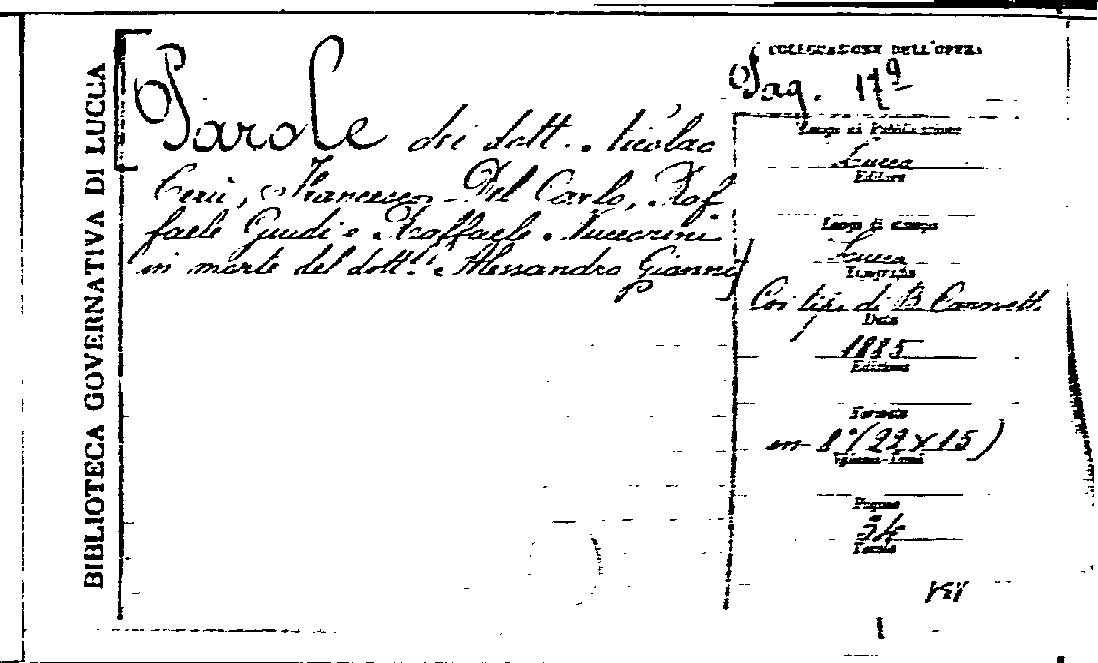 BIBLIOTECA GOVERNATIVA DI LUCCA
[Parole dei dott. Nicolao
Cerù, Francesco Del Carlo, Raf
faele Guidi e Raffaele Nuccorini
in morte del dott. Alessandro Gianni]
COLLOCAZIONE DELL'OPERA
Pag. 17
Luogo di Pubblicazione
Lucca
Editore
Luogo di stampa
Lucca
Tipografia
Coi tipi di B. Canovetti
Data
1885
Edizione
Formato
in 8° (22x15)
Volumi-Tomi
Pagine
24
Tavole